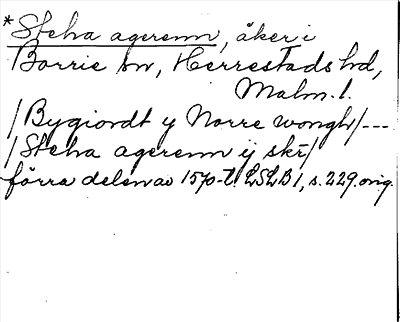 *Steha agerenn, åker i
Borrie sn, Herrestads hd,
Malm. l.
/Bygiordt y Norre wongh/---
/Steha agerenn ij skr/
förra delen av 1570-t. LSLB 1, s. 229. orig.